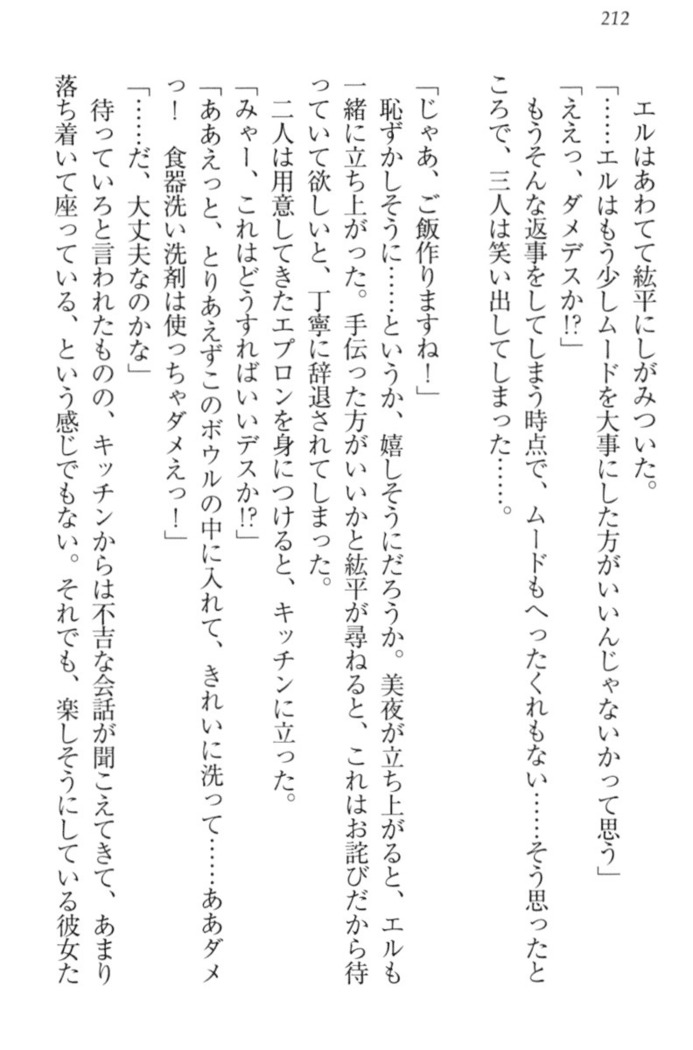 212
エルはあわてて紘平にしがみついた。
「……エルはもう少しムードを大事にした方がいいんじゃないかって思う」
「ええっ、ダメデスか!?」
もうそんな返事をしてしまう時点で、ムードもへったくれもない……そう思ったと
ころで、三人は笑い出してしまった……。
「じゃあ、ご飯作りますね！」
恥ずかしそうに……というか、嬉しそうにだろうか。美夜が立ち上がると、エルも
一緒に立ち上がった。手伝った方がいいかと紘平が尋ねると、これはお詫びだから待
っていて欲しいと、丁寧に辞退されてしまった。
二人は用意してきたエプロンを身につけると、キッチンに立った。
「みゃー、これはどうすればいいデスか!?」
「ああえっと、とりあえずこのボウルの中に入れて、きれいに洗って……ああダメ
っ！　食器洗い洗剤は使っちゃダメえっ！」
「……だ、大丈夫なのかな」
待っていろと言われたものの、キッチンからは不吉な会話が聞こえてきて、あまり
落ち着いて座っている、という感じでもない。それでも、楽しそうにしている彼女た